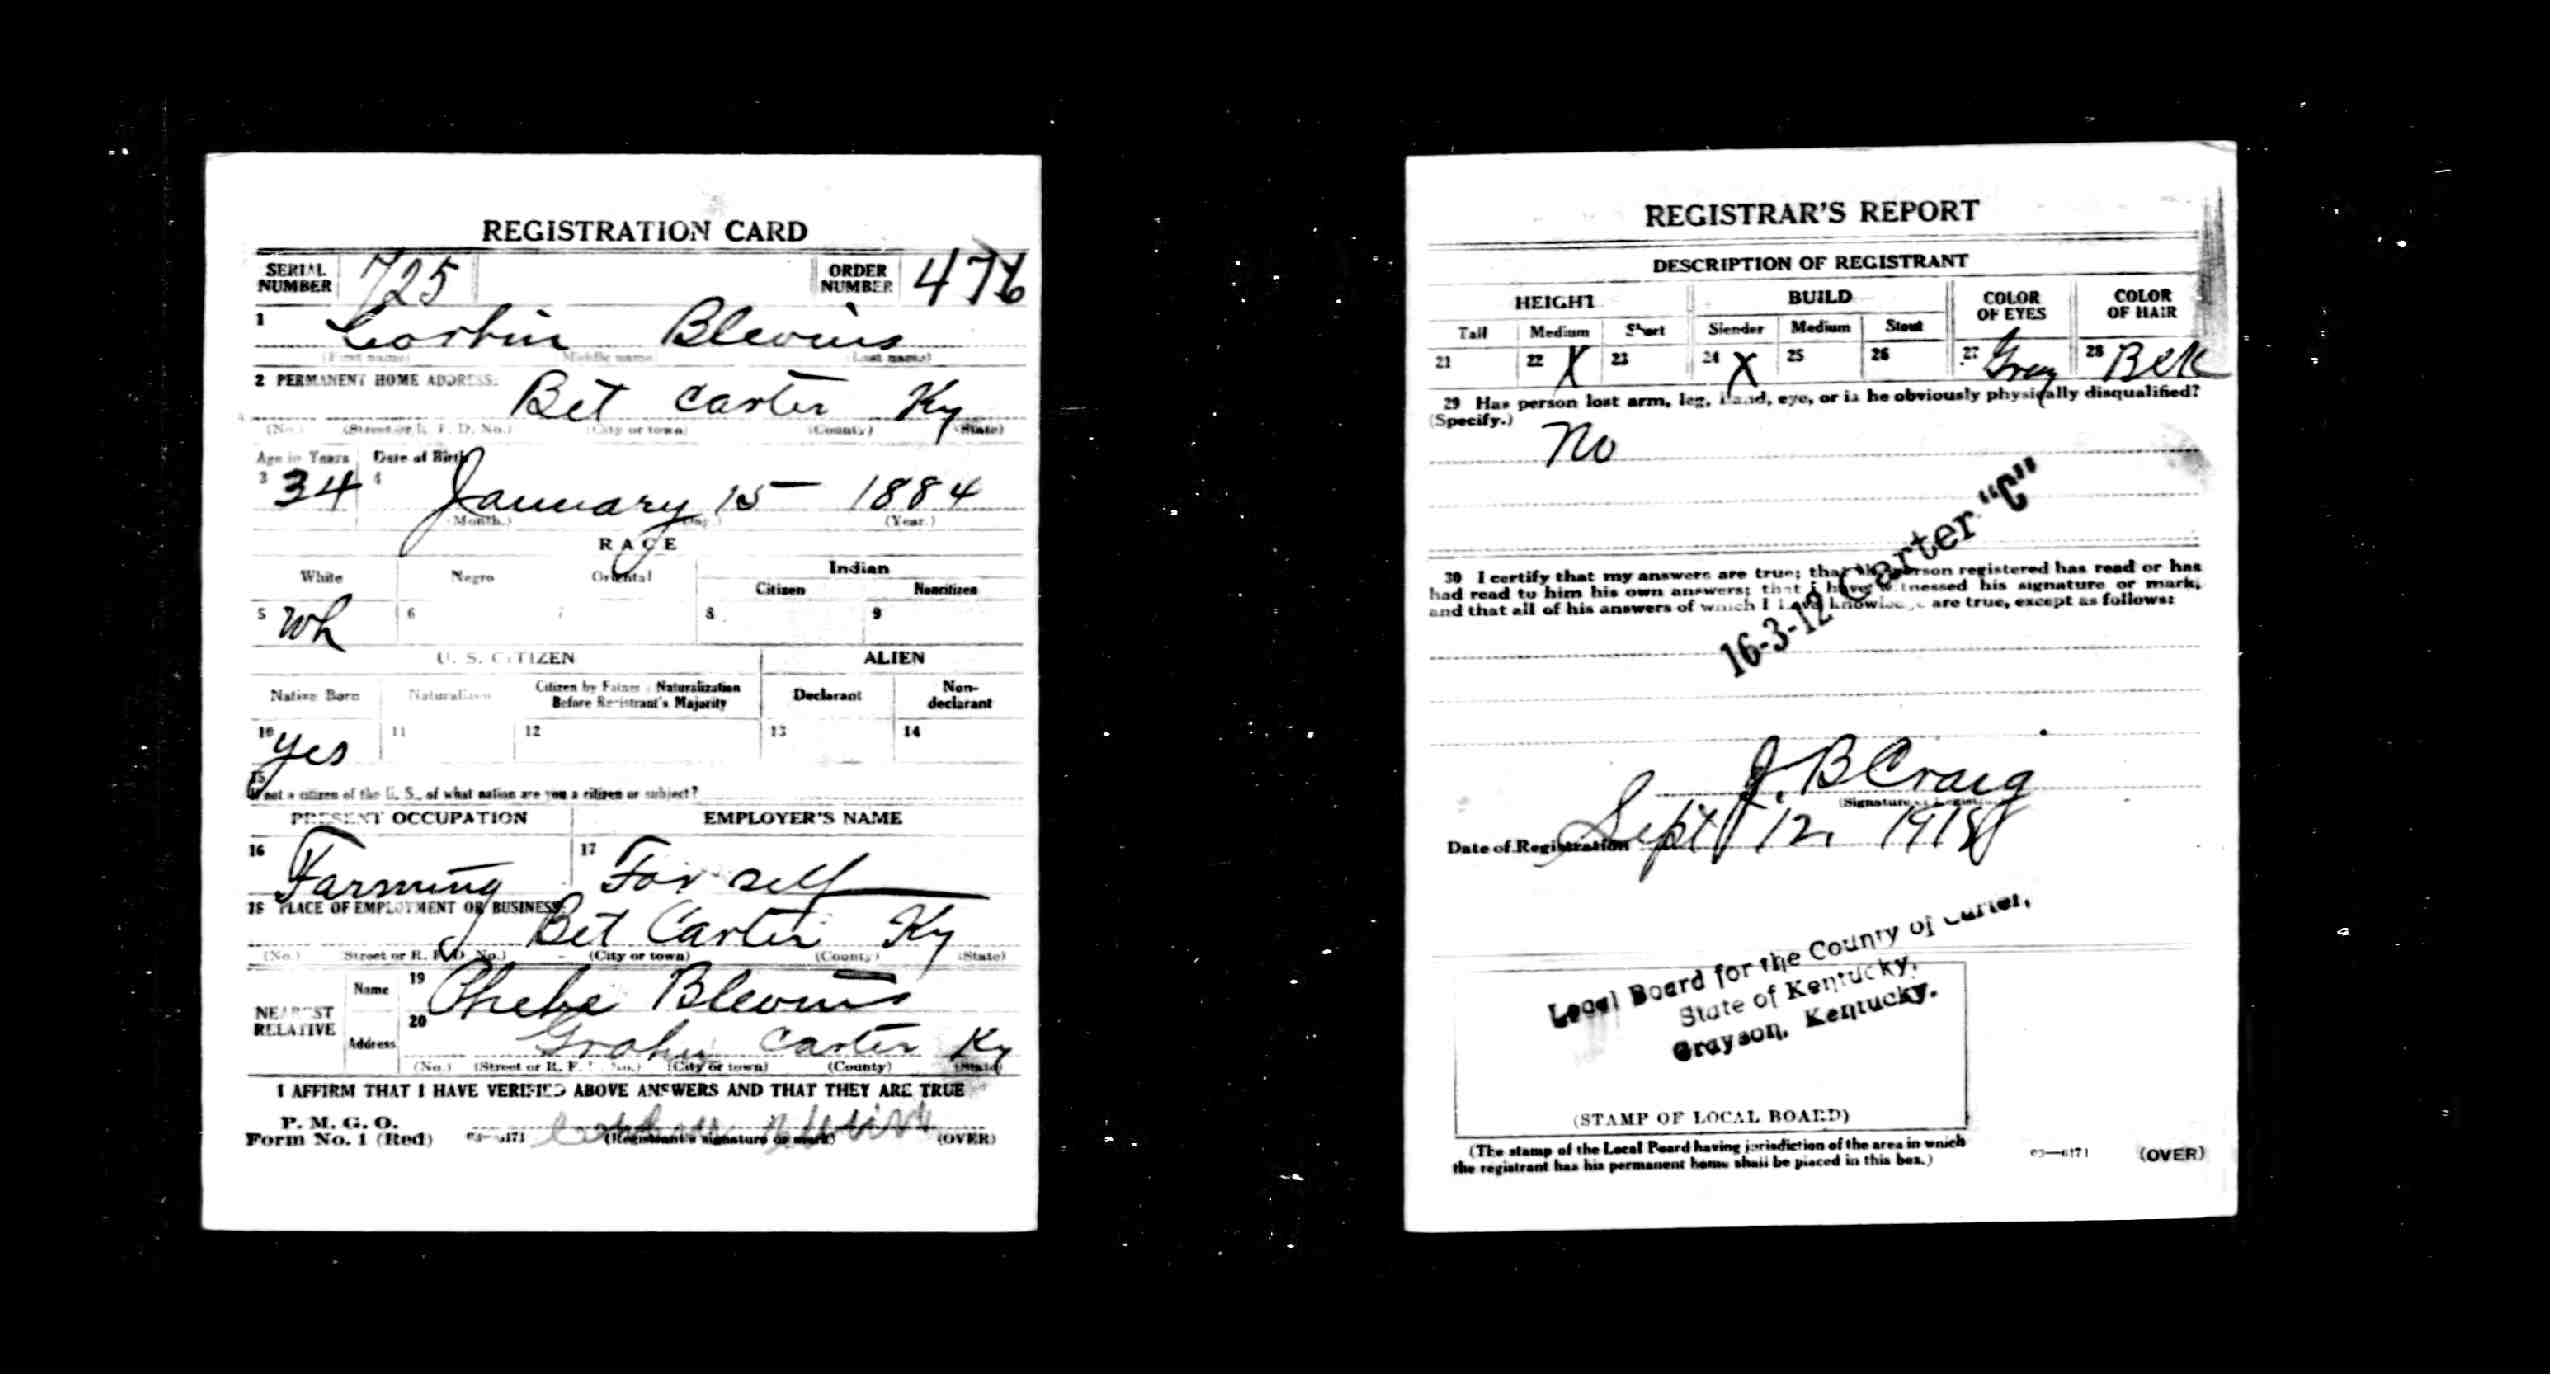 REGISTRATION CARD
SERIAL NUMBER 725 ORDER NUMBER 476
1 Corbin Blevins
(First name) Middle name (Last name)
2 PERMANENT HOME ADDRESS:
Bet Carter Ky
(No.) (Street or R. F. D. No.) (City or town) (County) (State)
Age in Years Date of Birth
3 34 4 January 15 1884
(Month.) (Day.) (Year.)
RACE
White Negro Oriental Indian
Citizen Noncitizen
5 Wh 6 7 8 9
U. S. CITIZEN ALIEN
Native Born Naturalized Citizen by Father's Naturalization Before Registrant's Majority Declarant Non-declarant
10 yes 11 12 13 14
15
If not a citizen of the U. S., of what nation are you a citizen or subject?
PRESENT OCCUPATION EMPLOYER'S NAME
16 Farming 17 For self
18 PLACE OF EMPLOYMENT OR BUSINESS:
Bet Carter Ky
(No.) Street or R. F. D. No.) (City or town) (County) (State)
NEAREST RELATIVE
Name 19 Phebe Blevins
Address 20 Grahn Carter Ky
(No.) (Street or R. F. D. No.) (City or town) (County) (State)
I AFFIRM THAT I HAVE VERIFIED ABOVE ANSWERS AND THAT THEY ARE TRUE
P. M. G. O.
Form No. 1 (Red) 03—6171 Corbin Blevins (Registrant's signature or mark) (OVER)
REGISTRAR'S REPORT
DESCRIPTION OF REGISTRANT
HEIGHT BUILD COLOR OF EYES COLOR OF HAIR
Tall Medium Short Slender Medium Stout
21 22 X 23 24 X 25 26 27 Gray 28 Blk
29 Has person lost arm, leg, hand, eye, or is he obviously physically disqualified?
(Specify.)
No
16-3-12 Carter "C"
30 I certify that my answers are true; that the person registered has read or has
had read to him his own answers; that I have witnessed his signature or mark,
and that all of his answers of which I have knowledge are true, except as follows:
J. B Craig
(Signature of Registrar)
Date of Registration Sept 12, 1918
Local Board for the County of Carter,
State of Kentucky,
Grayson, Kentucky.
(STAMP OF LOCAL BOARD)
(The stamp of the Local Board having jurisdiction of the area in which
the registrant has his permanent home shall be placed in this box.)
03—6171 (OVER)